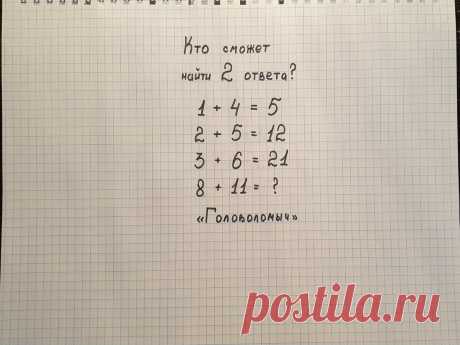 Кто сможет
найти 2 ответа?
1 + 4 = 5
2 + 5 = 12
3 + 6 = 21
8 + 11 = ?
«Головоломыч»
postila.ru